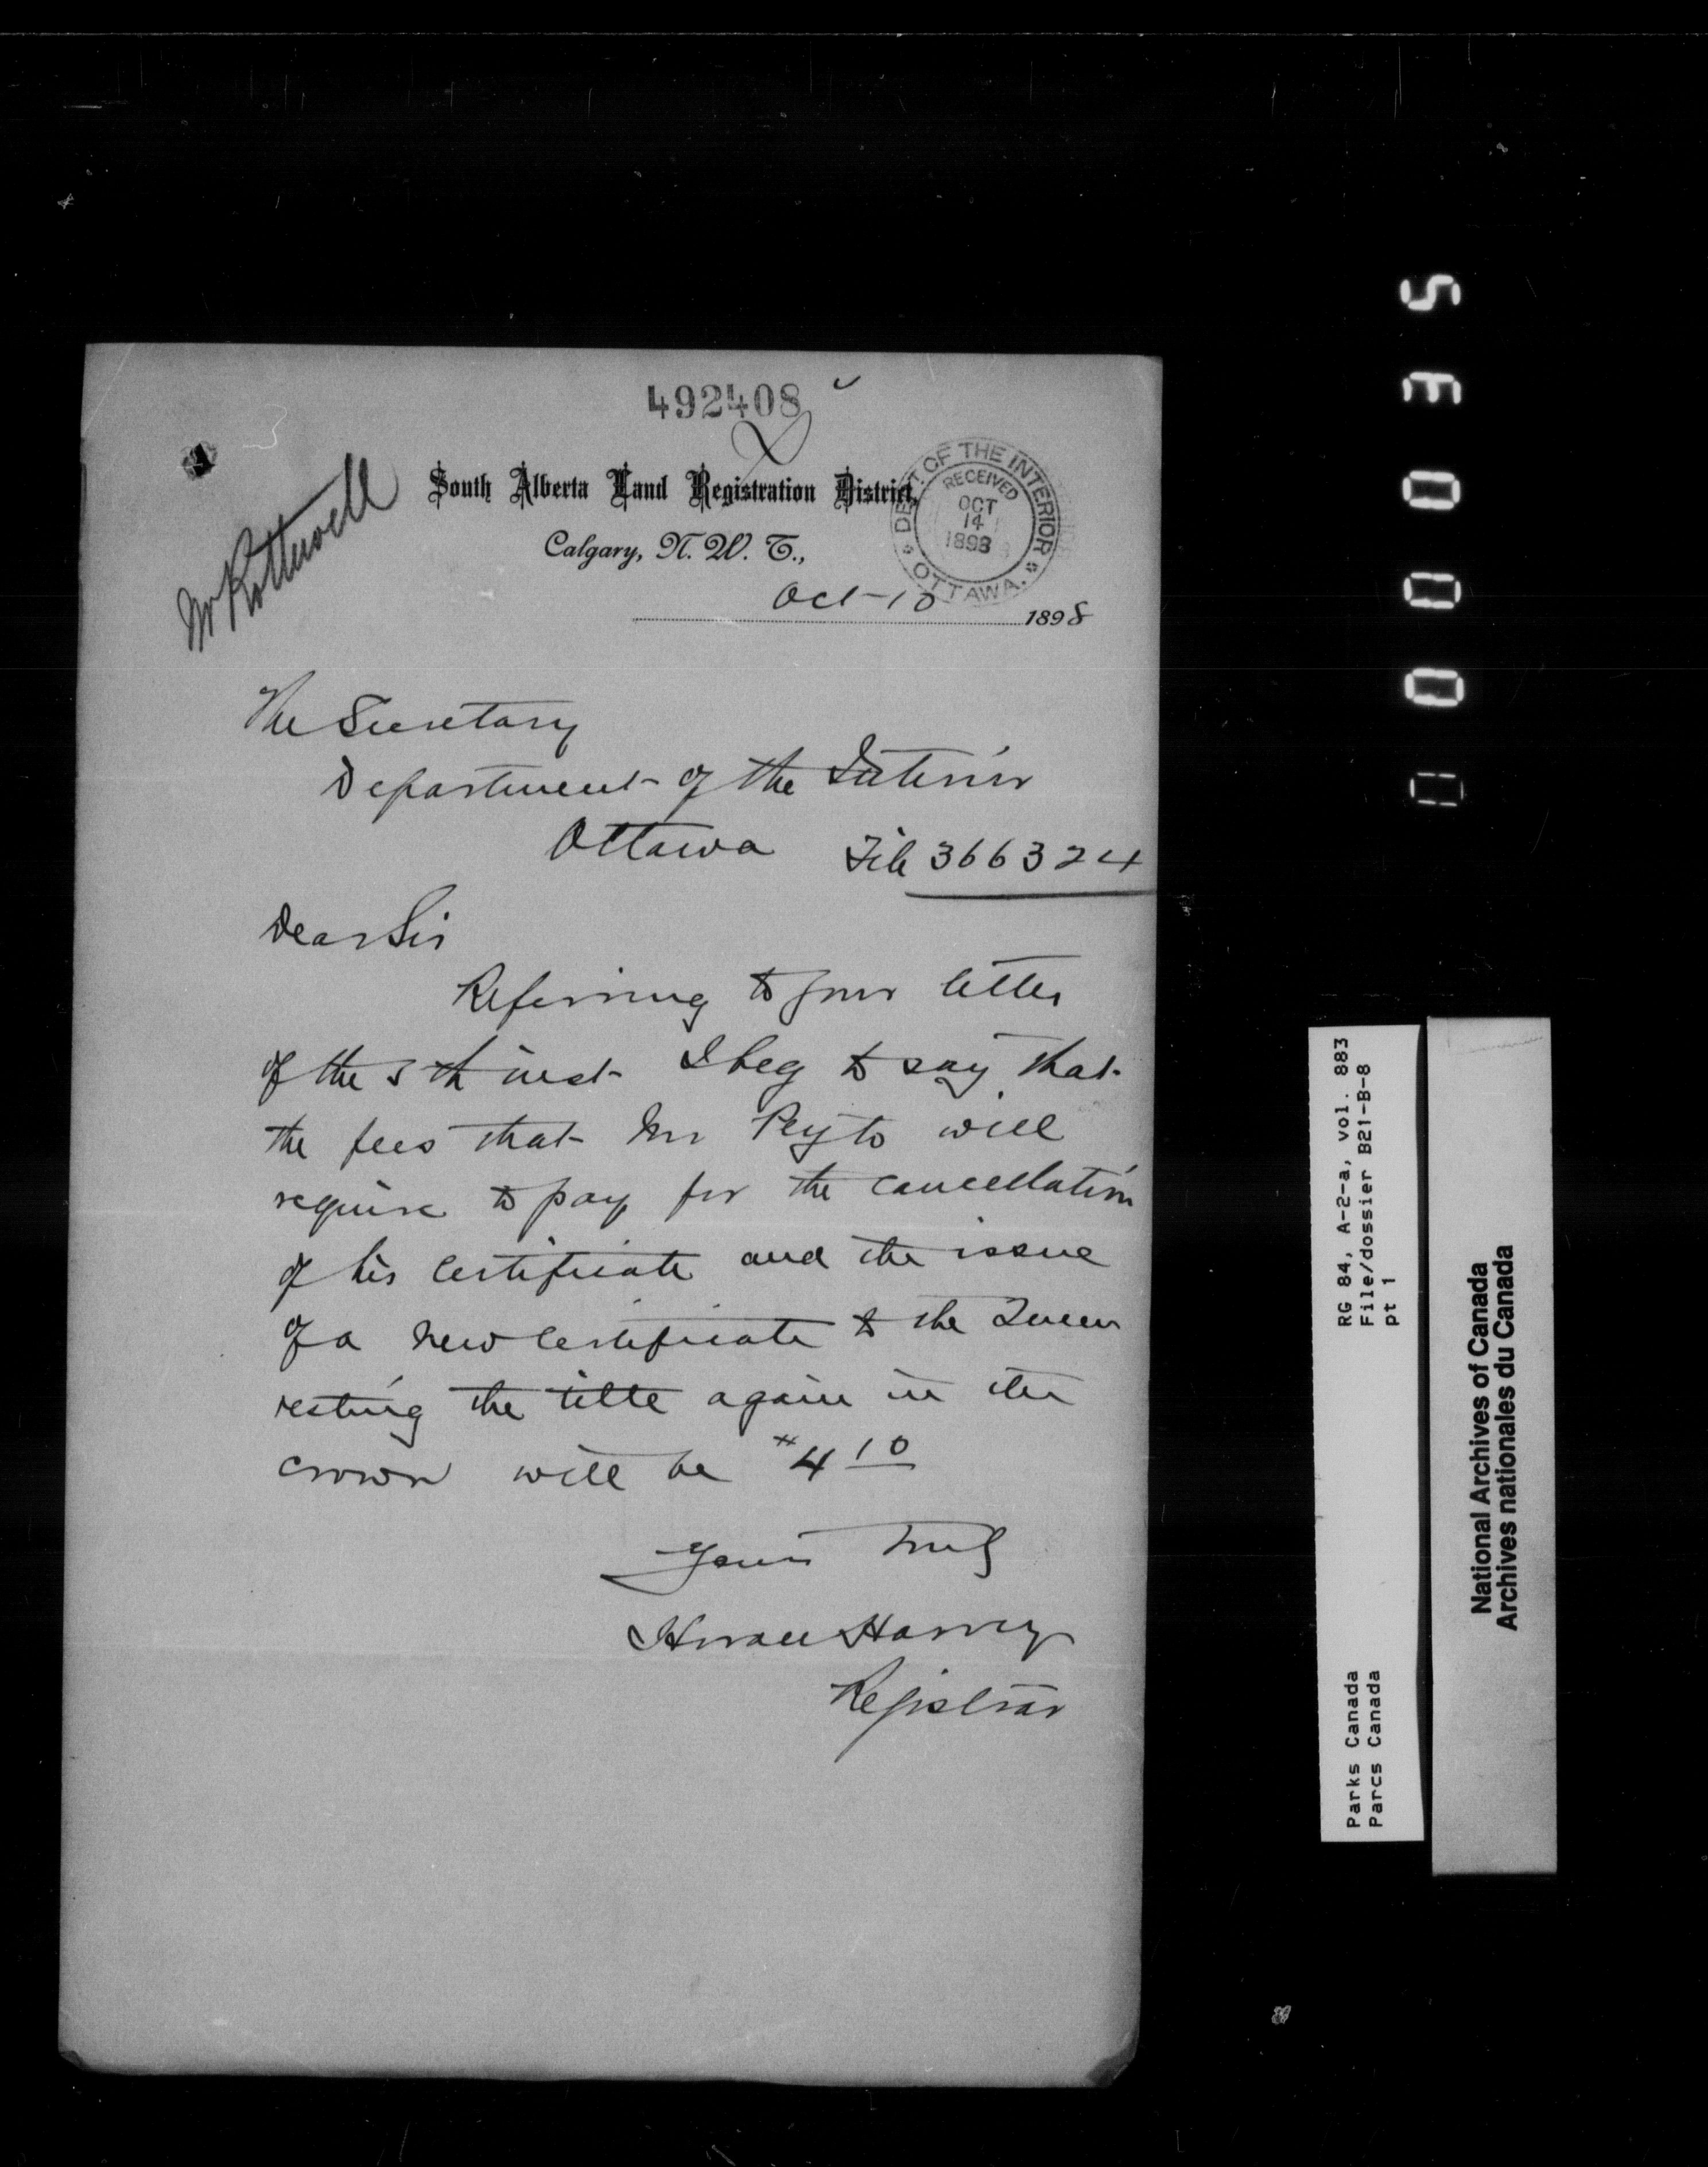 492408
Mr Rothwell
South Alberta Land Registration District,
DEPT. OF THE INTERIOR
RECEIVED
OCT
14
1898
OTTAWA.
Calgary, N. W. T.,
Oct 10 1898
The Secretary
Department of the Interior
Ottawa File 366324
Dear Sir
Referring to your letter
of the 5th inst I beg to say that
the fees that Mr Peyto will
require to pay for the cancellation
of his certificate and the issue
of a new certificate to the Queen
vesting the title again in the
crown will be $4 10
Yours truly
Horace Harvey
Registrar
000035
RG 84, A-2-a, vol. 883
File/dossier B21-B-8
pt 1
Parks Canada
Parcs Canada
National Archives of Canada
Archives nationales du Canada